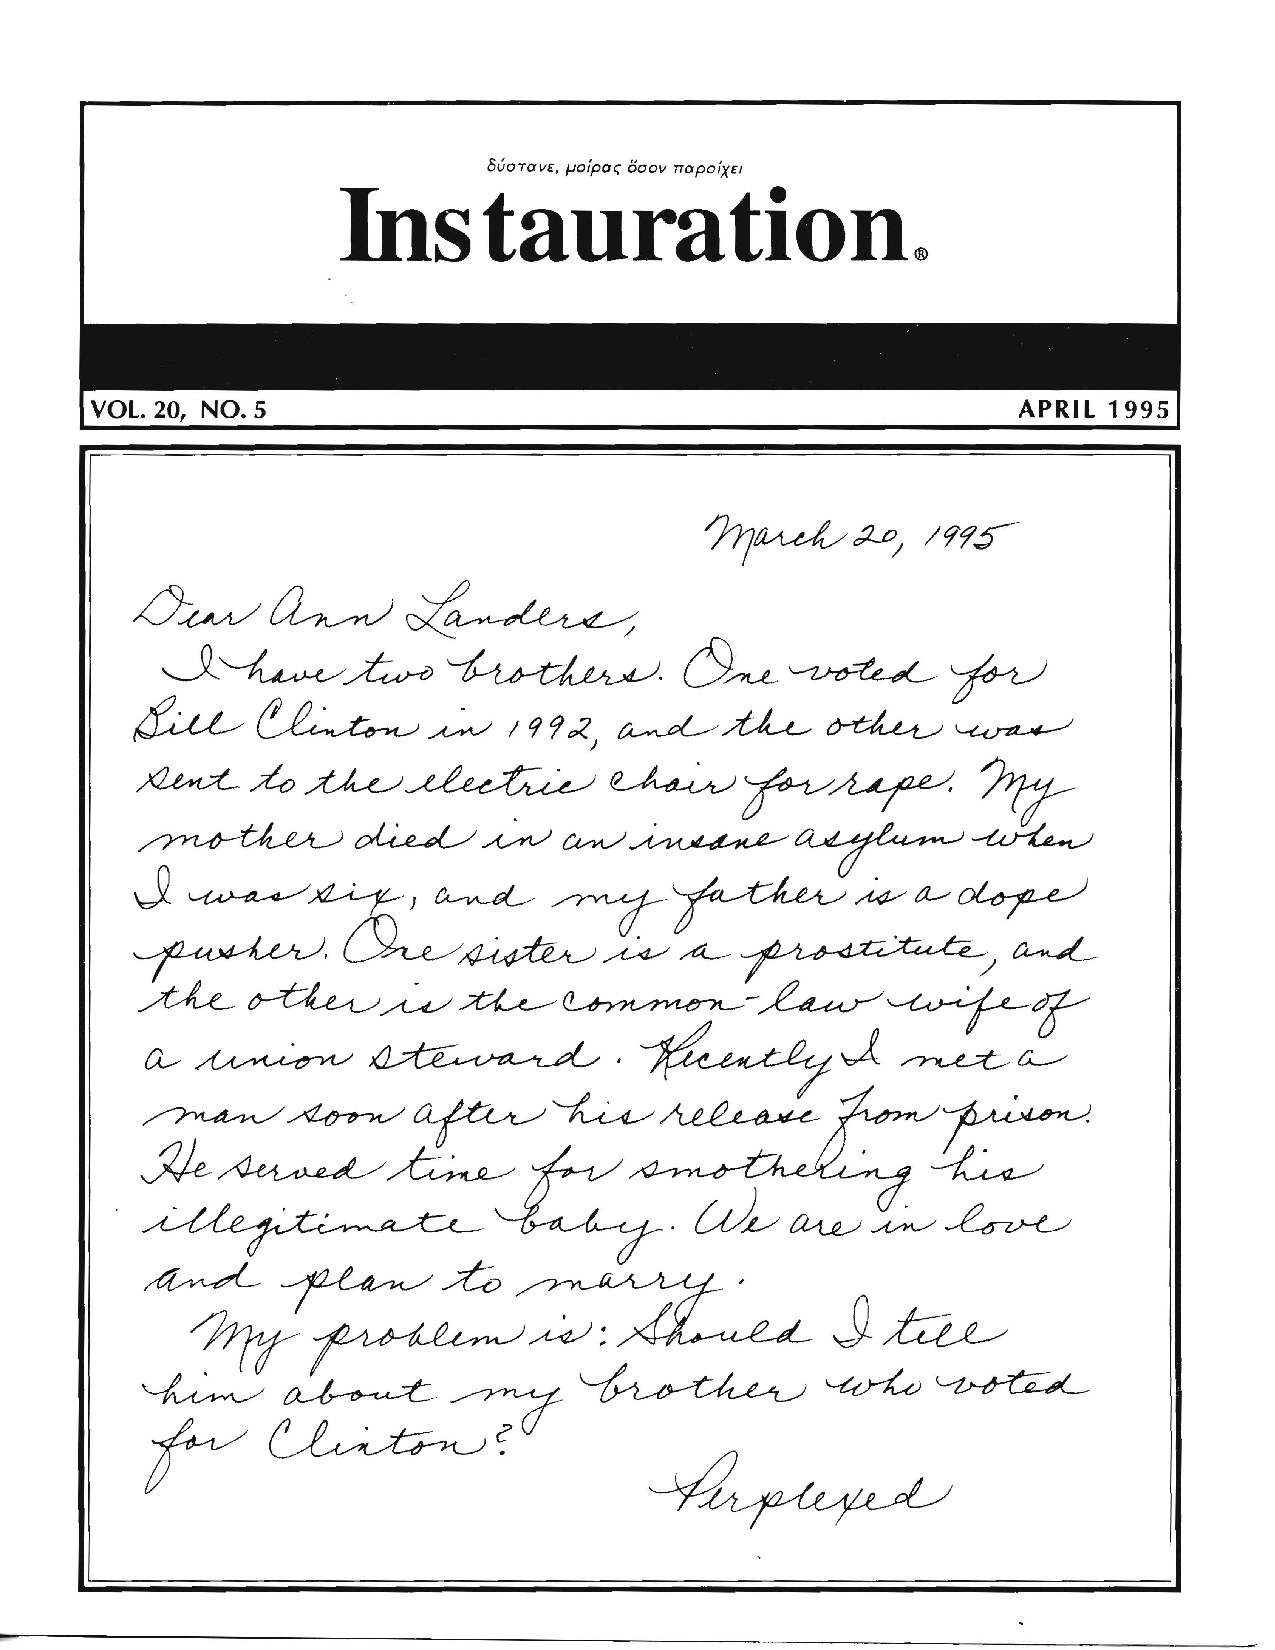 δύστανε, μοίρας ὅσον παροίχει
Instauration®
VOL. 20, NO. 5
APRIL 1995
March 20, 1995
Dear Ann Landers,
I have two brothers. One voted for
Bill Clinton in 1992, and the other was
sent to the electric chair for rape. My
mother died in an insane asylum when
I was six, and my father is a dope
pusher. One sister is a prostitute, and
the other is the common-law wife of
a union steward. Recently I met a
man soon after his release from prison.
He served time for smothering his
illegitimate baby. We are in love
and plan to marry.
My problem is: Should I tell
him about my brother who voted
for Clinton?
Perplexed